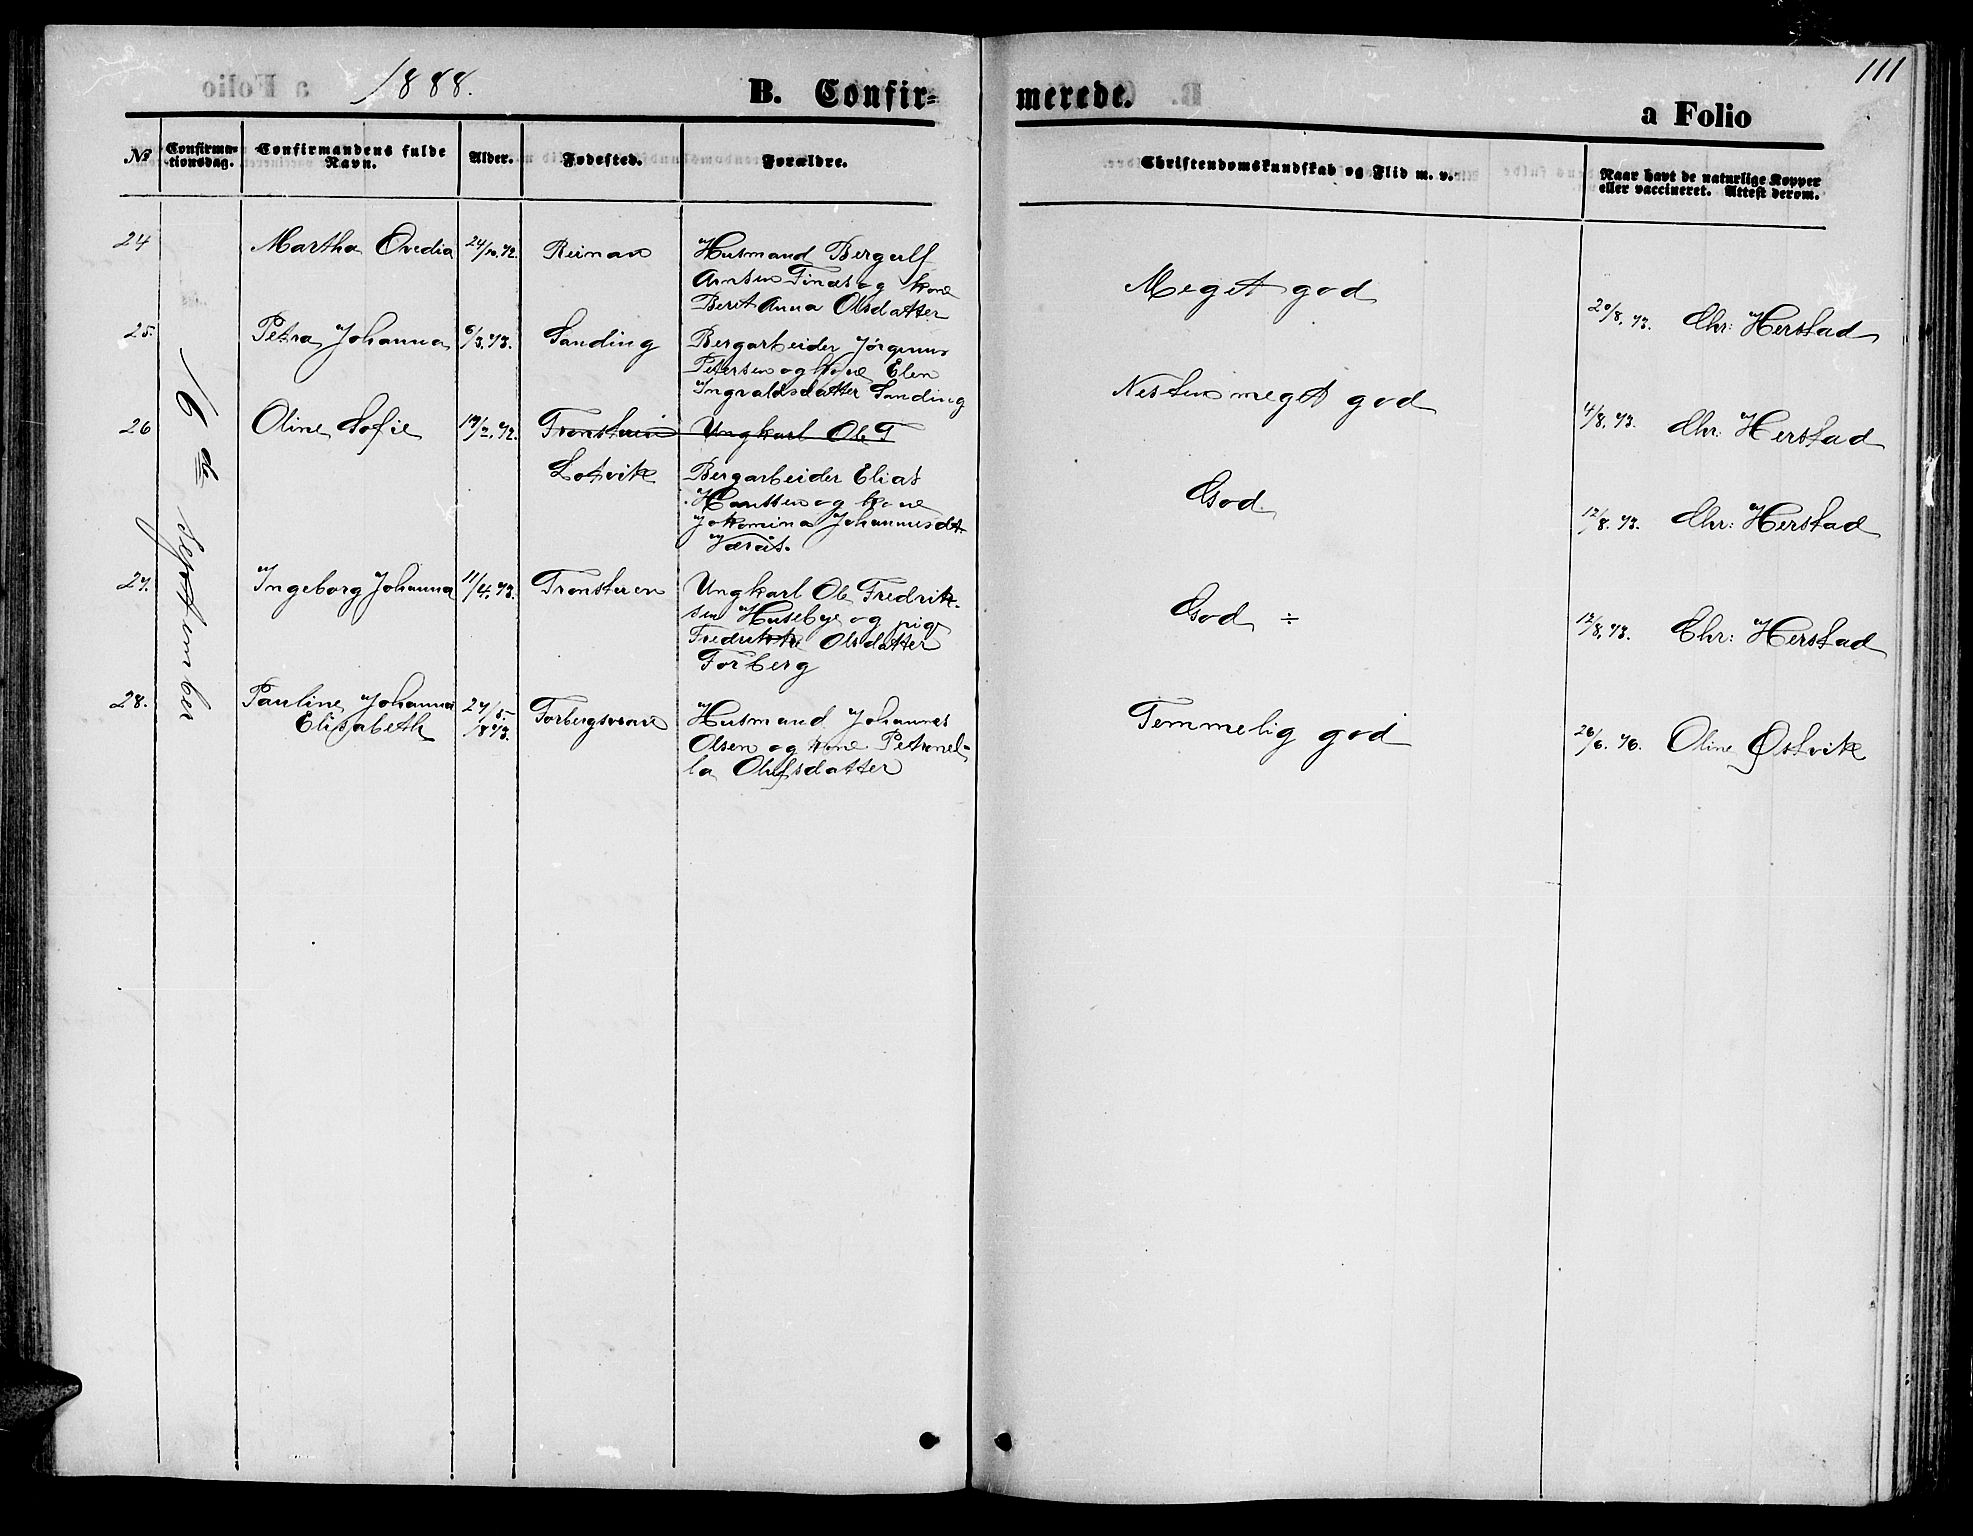 1888.
111
B. Confir=
merede.
a Folio
№
Confirma-
tionsdag.
Confirmandens fulde
Navn.
Alder.
Fødested.
Forældre.
Christendomskundskab og Flid m. v.
Naar havt de naturlige Kopper
eller vaccineret. Attest derom.
16de September
24 Martha Ovedia 24/10.72. Reinaa Husmand Bergulf
Arntsen Finæs og kone
Berit Anna Olsdatter
Meget god
20/8.73. Chr: Herstad
25. Petra Johanna 6/3.73. Sanding Bergarbeider Jørginus
Petersen og kone Elen
Ingvaldsdatter Sanding
Nesten meget god
4/8.73. Chr: Herstad
26 Oline Sofie 12. Tronsteren Ungkarl Ole T
Lotvik Bergarbeider Elias
Hanssen og kone
Jokomina Johannesdt
Værås.
God.
12/8.73. Chr: Herstad
27. Ingeborg Johanna 11/4.73. Tronsteren Ungkarl Ole Fredrik-
sen Husebye og pige
Fredrikke Olsdatter
Forberg
God ÷
12/8.73. Chr: Herstad
28. Pauline Johanna 27/5- Forbergsvove Husmand Johannes
Elisabeth 1873. Olsen og kone Petronel-
la Olufsdatter
Temmelig god
26/6.76. Oline Østvik